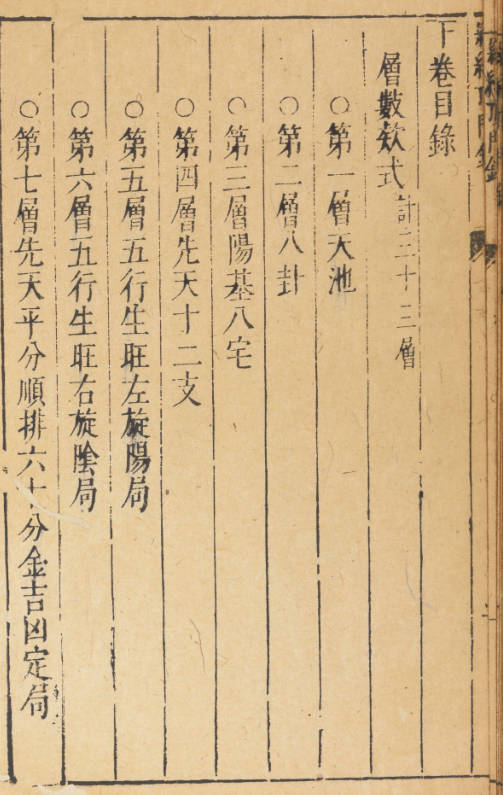 下卷目錄
層數欵式 計三十三層
○第一層天池
○第二層八卦
○第三層陽基八宅
○第四層先天十二支
○第五層五行生旺左旋陽局
○第六層五行生旺右旋陰局
○第七層先天平分順排六十分金吉凶定局